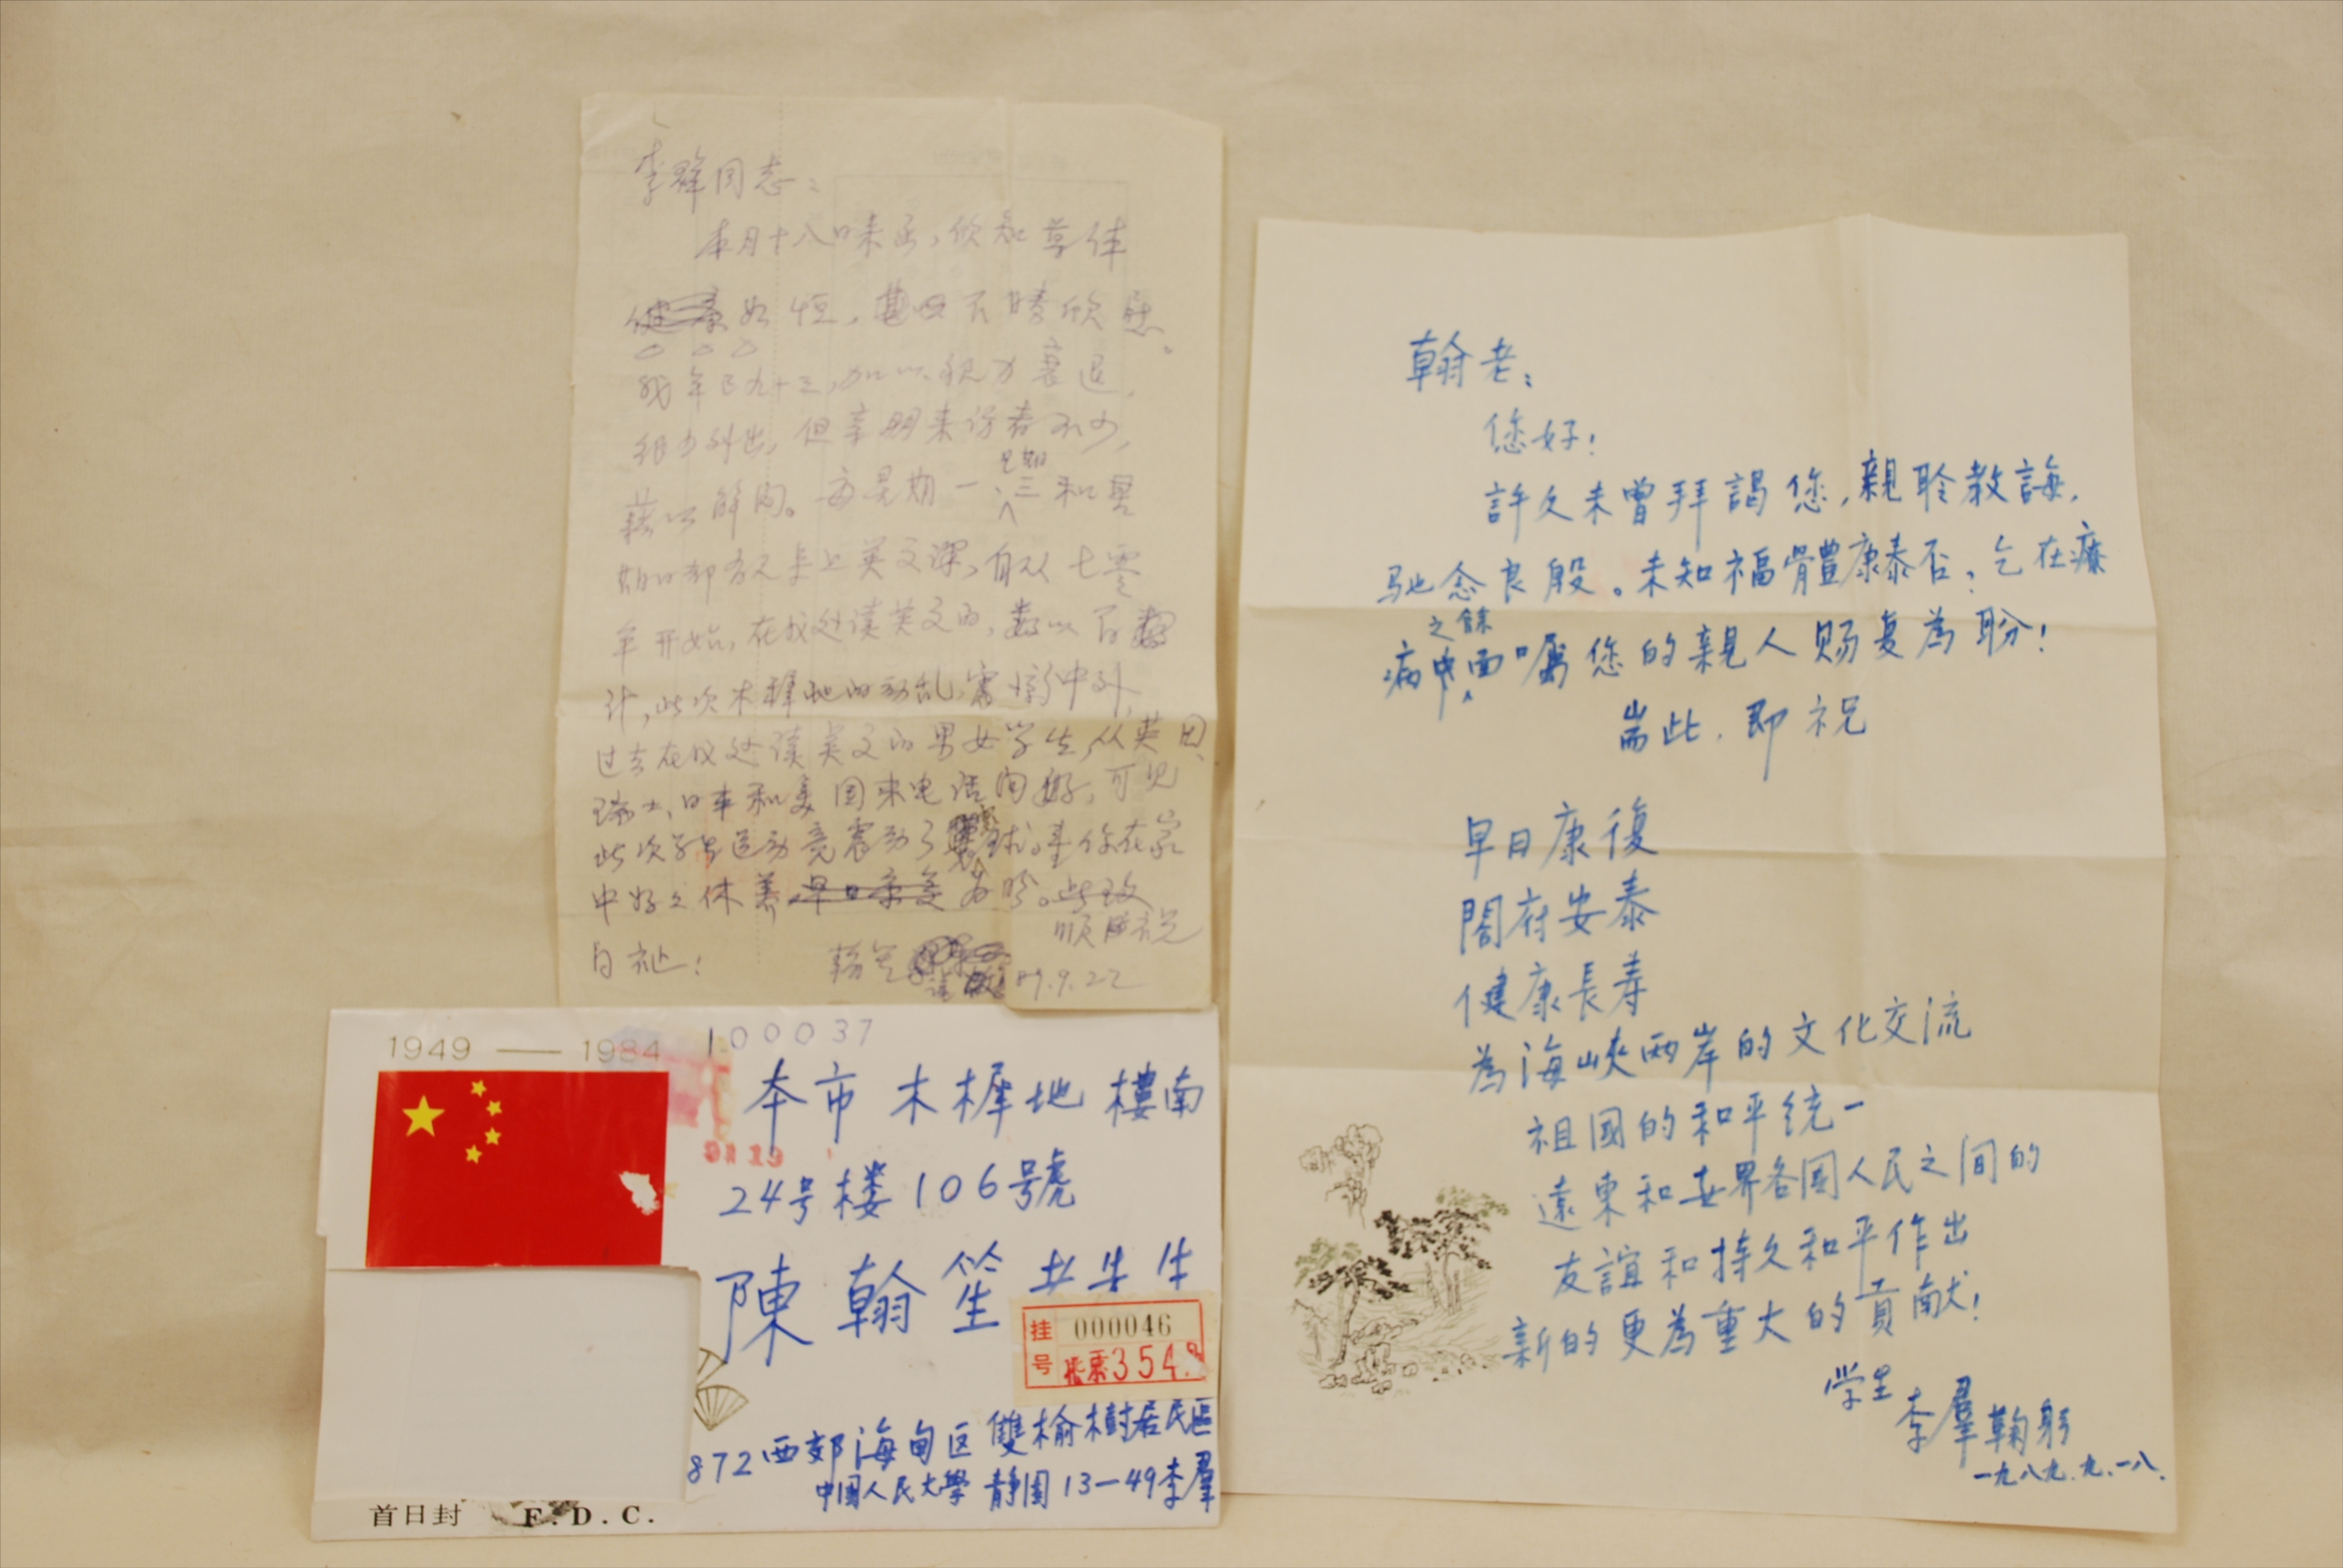 李群同志：
本月十八日来函，欣知尊体
健康如恒，甚不胜欣慰。
我年已九十三，加以视力衰退，
很少外出，但亲朋来访者不少，
藉以解闷。每星期一、三和星
星期四
期日都有人来上英文课，自从七零
年开始，在我处读英文的，数以百
计，此次木樨地的动乱，震惊中外，
过去在我处读英文的男女学生，从英国、
瑞士、日本和美国来电话问好，可见
此次学生运动竟震动了全球。望你在家
中好好休养早日康复为盼。此致
顺祝
日祉！
翰笙
89.9.22
翰老：
您好！
許久未曾拜謁您，親聆教誨，
驰念良殷。未知福體康泰否，乞在療
之餘
病中面囑您的親人赐复為盼！
耑此，即祝
早日康復
閤府安泰
健康長寿
為海峽两岸的文化交流
祖國的和平统一
遠東和世界各國人民之间的
友誼和持久和平作出
新的更為重大的貢献！
学生
李羣鞠躬
一九八九.九.一八.
1949 — 1984
100037
本市木樨地樓南
24号楼106號
陳翰笙
挂号
000046
北京354
872西郊海甸区雙榆樹居民區
中國人民大學静园13—49李羣
首日封 F.D.C.